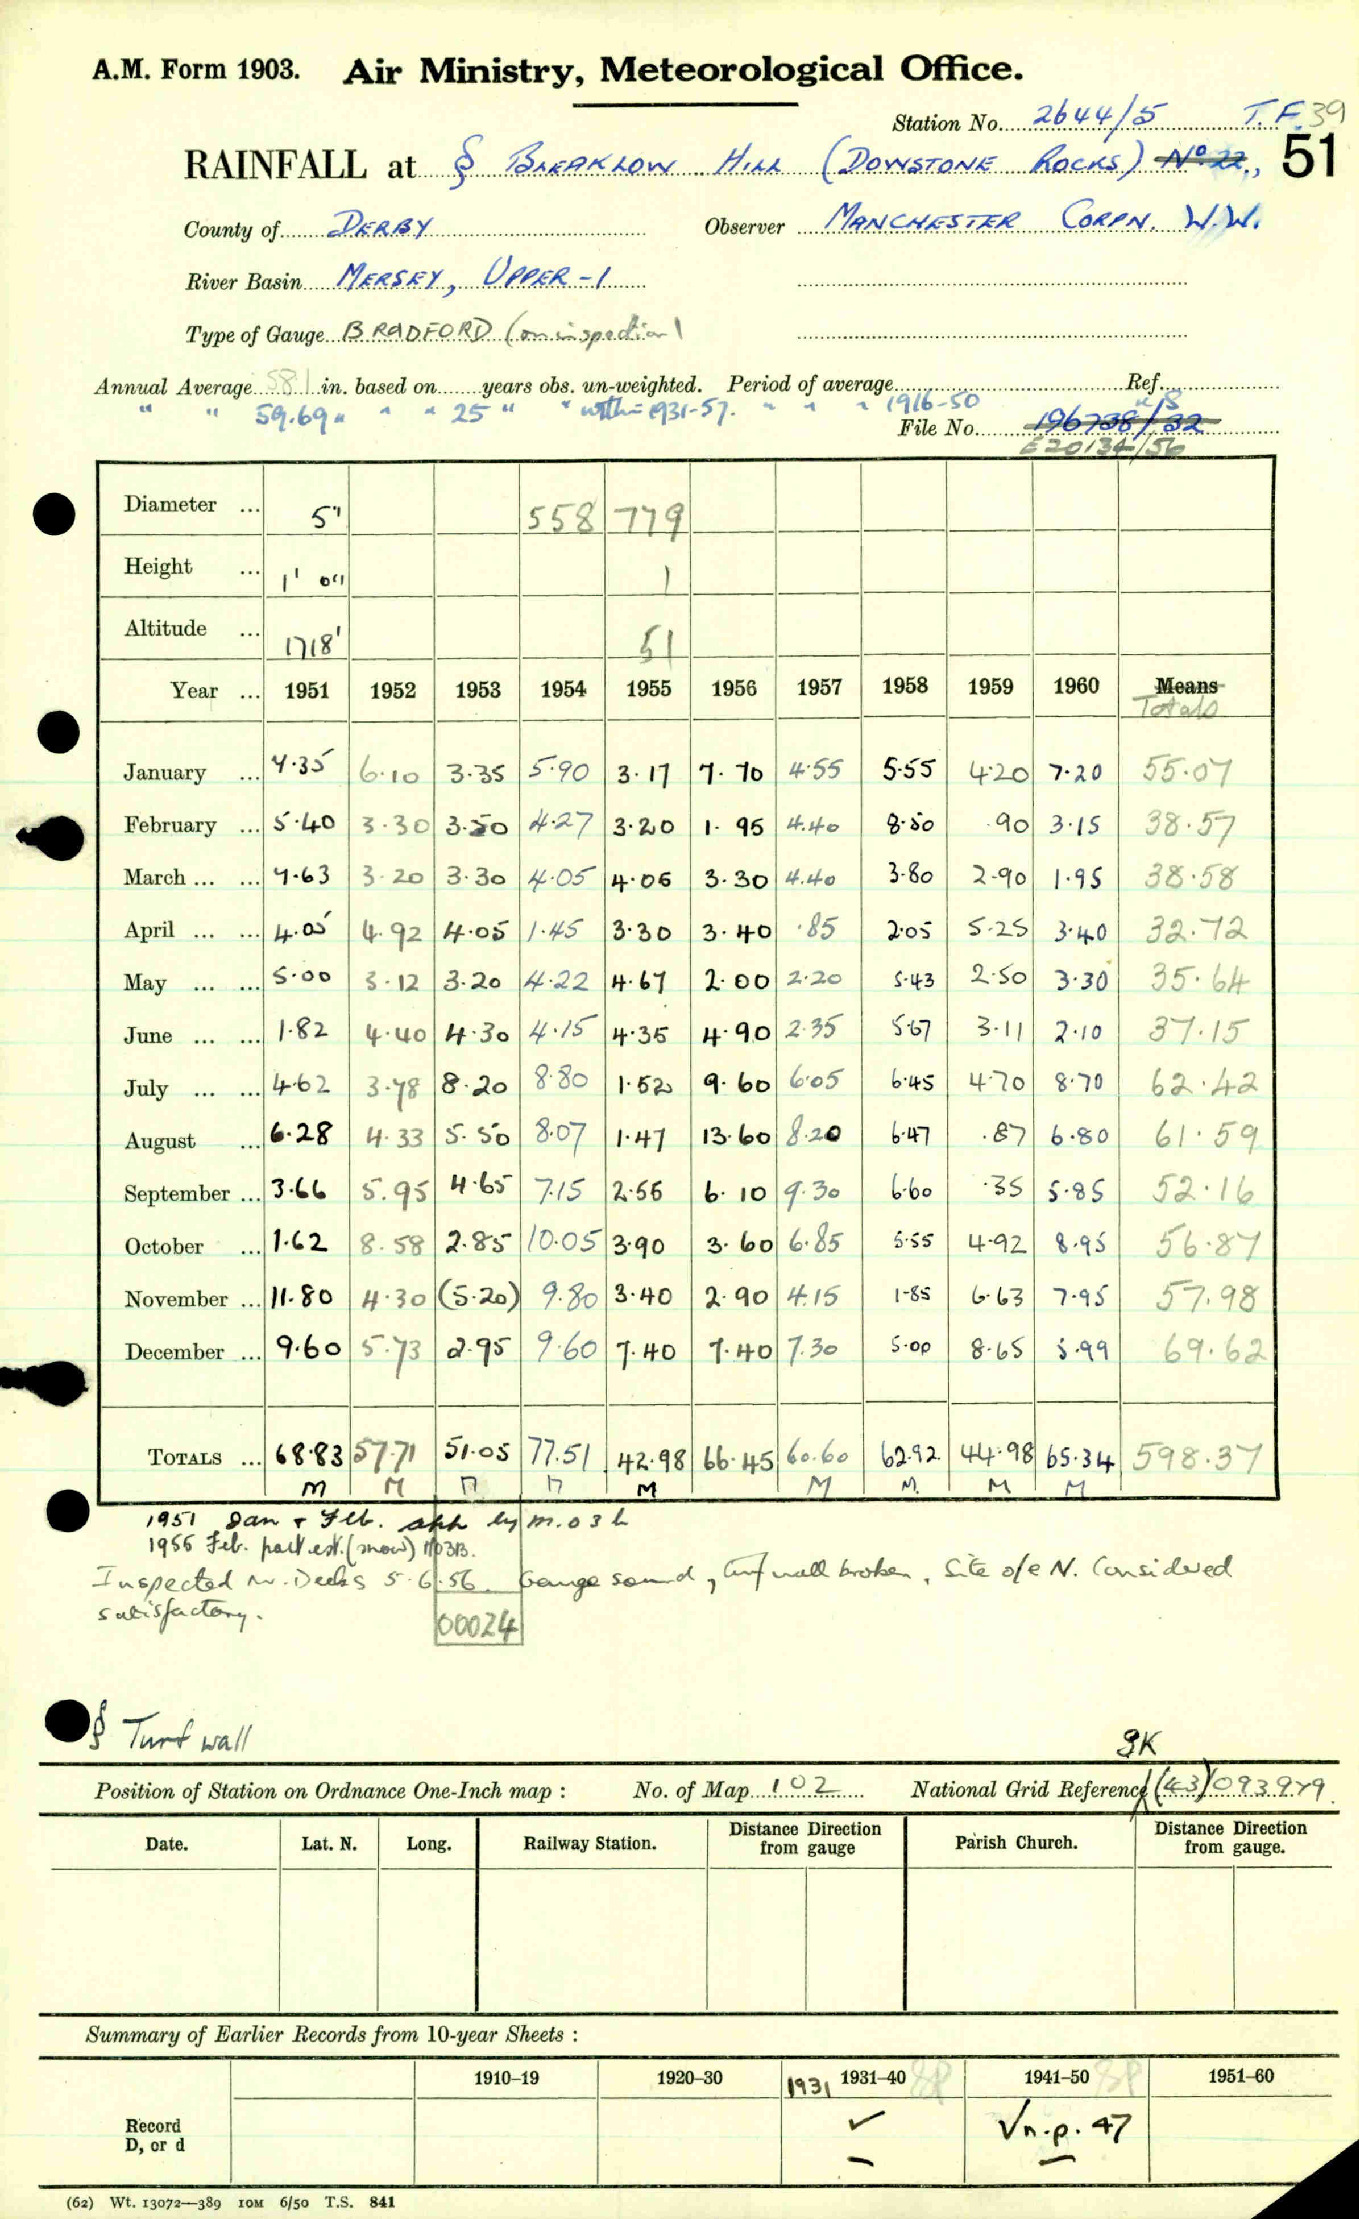 A.M. Form 1903. Air Ministry, Meteorological Office.
Station No. 2644/5 T.F. 39
RAINFALL at § BLEAKLOW HILL (DOWSTONE ROCKS) No. 22, 51
County of DERBY Observer MANCHESTER CORPN. W.W.
River Basin MERSEY, UPPER -1
Type of Gauge BRADFORD (on inspection)
Annual Average 58.1 in. based on years obs. un-weighted. Period of average Ref.
" " 59.69 " " " 25 " " with 1931-57. " " " 1916-50
File No. 196738/32
E20134/56
Diameter ... 5" 558 779
Height ... 1' 0" 1
Altitude ... 1718' 51
Year ... 1951 1952 1953 1954 1955 1956 1957 1958 1959 1960 Means
Totals
January ... 7.35 6.10 3.35 5.90 3.17 7.70 4.55 5.55 4.20 7.20 55.07
February ... 5.40 3.30 3.50 4.27 3.20 1.95 4.40 8.50 .90 3.15 38.57
March ... ... 7.63 3.20 3.30 4.05 4.05 3.30 4.40 3.80 2.90 1.95 38.58
April ... ... 4.05 4.92 4.05 1.45 3.30 3.40 .85 2.05 5.25 3.40 32.72
May ... ... 5.00 3.12 3.20 4.22 4.67 2.00 2.20 5.43 2.50 3.30 35.64
June ... ... 1.82 4.40 4.30 4.15 4.35 4.90 2.35 5.67 3.11 2.10 37.15
July ... ... 4.62 3.78 8.20 8.80 1.52 9.60 6.05 6.45 4.70 8.70 62.42
August ... 6.28 4.33 5.50 8.07 1.47 13.60 8.20 6.47 .87 6.80 61.59
September ... 3.66 5.95 4.65 7.15 2.55 6.10 9.30 6.60 .35 5.85 52.16
October ... 1.62 8.58 2.85 10.05 3.90 3.60 6.85 5.55 4.92 8.95 56.87
November ... 11.80 4.30 (5.20) 9.80 3.40 2.90 4.15 1.85 6.63 7.95 57.98
December ... 9.60 5.73 2.95 9.60 7.40 7.40 7.30 5.00 8.65 5.99 69.62
TOTALS ... 68.83 57.71 51.05 77.51 42.98 66.45 60.60 62.92 44.98 65.34 598.37
M M M M M M M M M
1951 Jan + Feb. by M.O3b
1955 Feb. part est. (snow) MO3B.
Inspected Mr. Deeks 5.6.56. Gauge sound, turf wall broken. Site o/e N. Considered
satisfactory.
00024
§ Turf wall
SK
Position of Station on Ordnance One-Inch map : No. of Map 102 National Grid Reference (43)093979
Date. Lat. N. Long. Railway Station. Distance Direction from gauge Parish Church. Distance Direction from gauge.
Summary of Earlier Records from 10-year Sheets :
1910–19 1920–30 1931 1931–40 1941–50 1951–60
Record
D, or d ✓ √ n.p. 47
(62) Wt. 13072—389 10M 6/50 T.S. 841